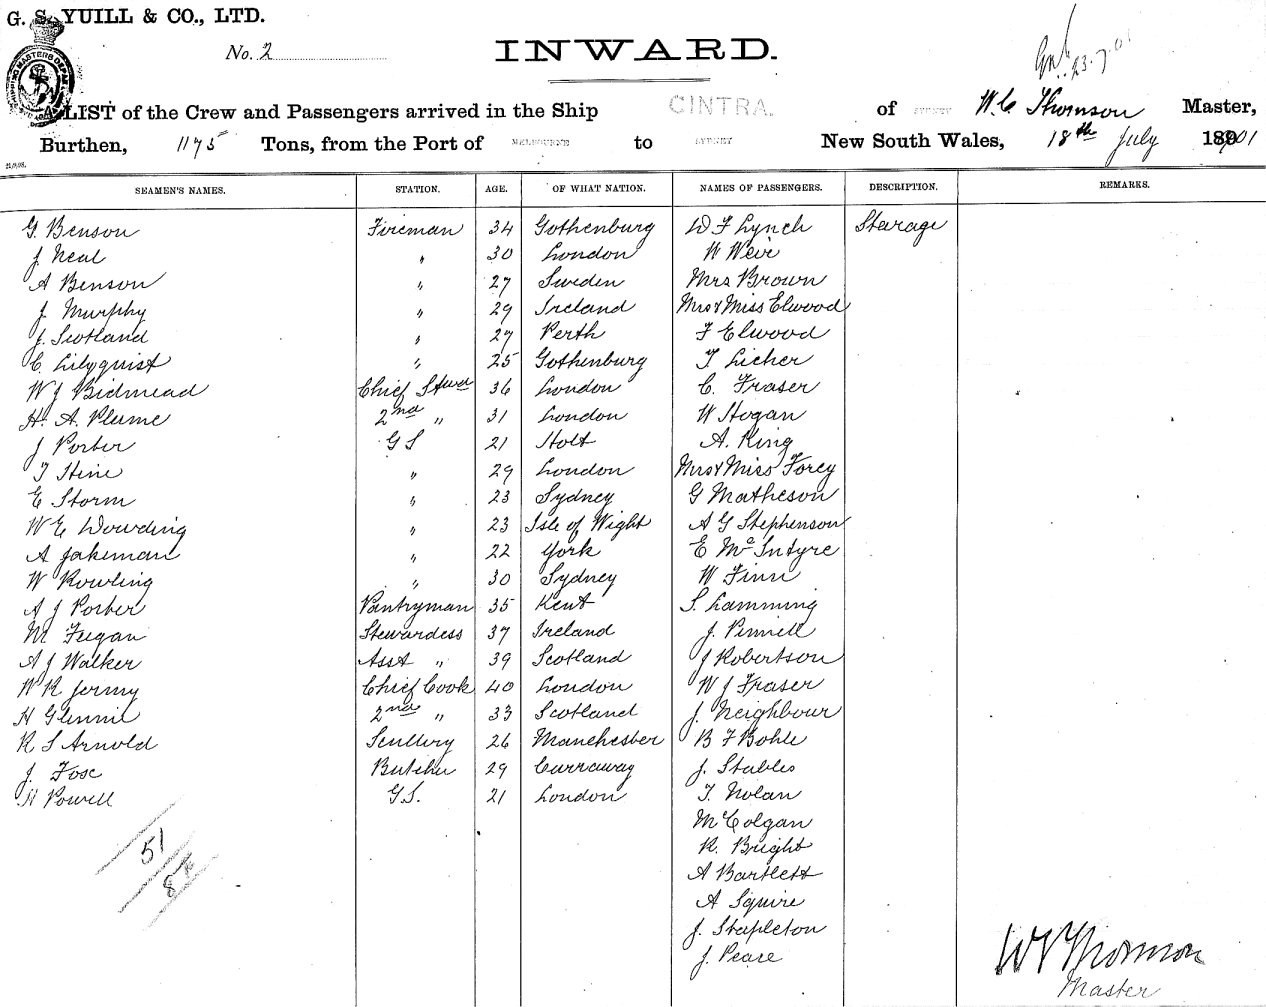 G. S. YUILL & CO., LTD.
No. 2
INWARD.
23.7.01
LIST of the Crew and Passengers arrived in the Ship CINTRA. of SYDNEY W. C. Thomson Master,
Burthen, 1175 Tons, from the Port of MELBOURNE to SYDNEY New South Wales, 18th July 1901
SEAMEN'S NAMES. STATION. AGE. OF WHAT NATION. NAMES OF PASSENGERS. DESCRIPTION. REMARKS.
G. Benson Fireman 34 Gothenburg W F Lynch Sterage
J Neal " 30 London W Weir
A Benson " 27 Sweden Mrs Brown
J. Murphy " 29 Ireland Mrs & Miss Elwood
J. Scotland " 27 Perth F Elwood
C. Lilyquist " 25 Gothenburg T Licher
W J Bidmead Chief Stwd 36 London C. Fraser
H. A. Plume 2nd " 31 London W Hogan
J Porter G S 21 Holt A. King
T Hine " 29 London Mrs & Miss Forey
E Storm " 23 Sydney G Matheson
W E Dowding " 23 Isle of Wight A G Stephenson
A Jakeman " 22 York E McIntyre
W Rowling " 30 Sydney W Finn
A J Porter Pantryman 35 Kent S. Lamming
M Feegan Stewardess 37 Ireland J. Pinnell
A J Walker Asst " 39 Scotland J Robertson
W R Jermy Chief Cook 40 London W J Fraser
H Glennie 2nd " 33 Scotland J. Neighbour
R S Arnold Scullery 26 Manchester B F Bohle
J. Fose Butcher 29 Curraway J. Stables
H Powell G.S. 21 London T. Nolan
McColgan
R. Bright
51
A Bartlett
8
A Squire
J. Stapleton
J. Peare
W C Thomson
Master